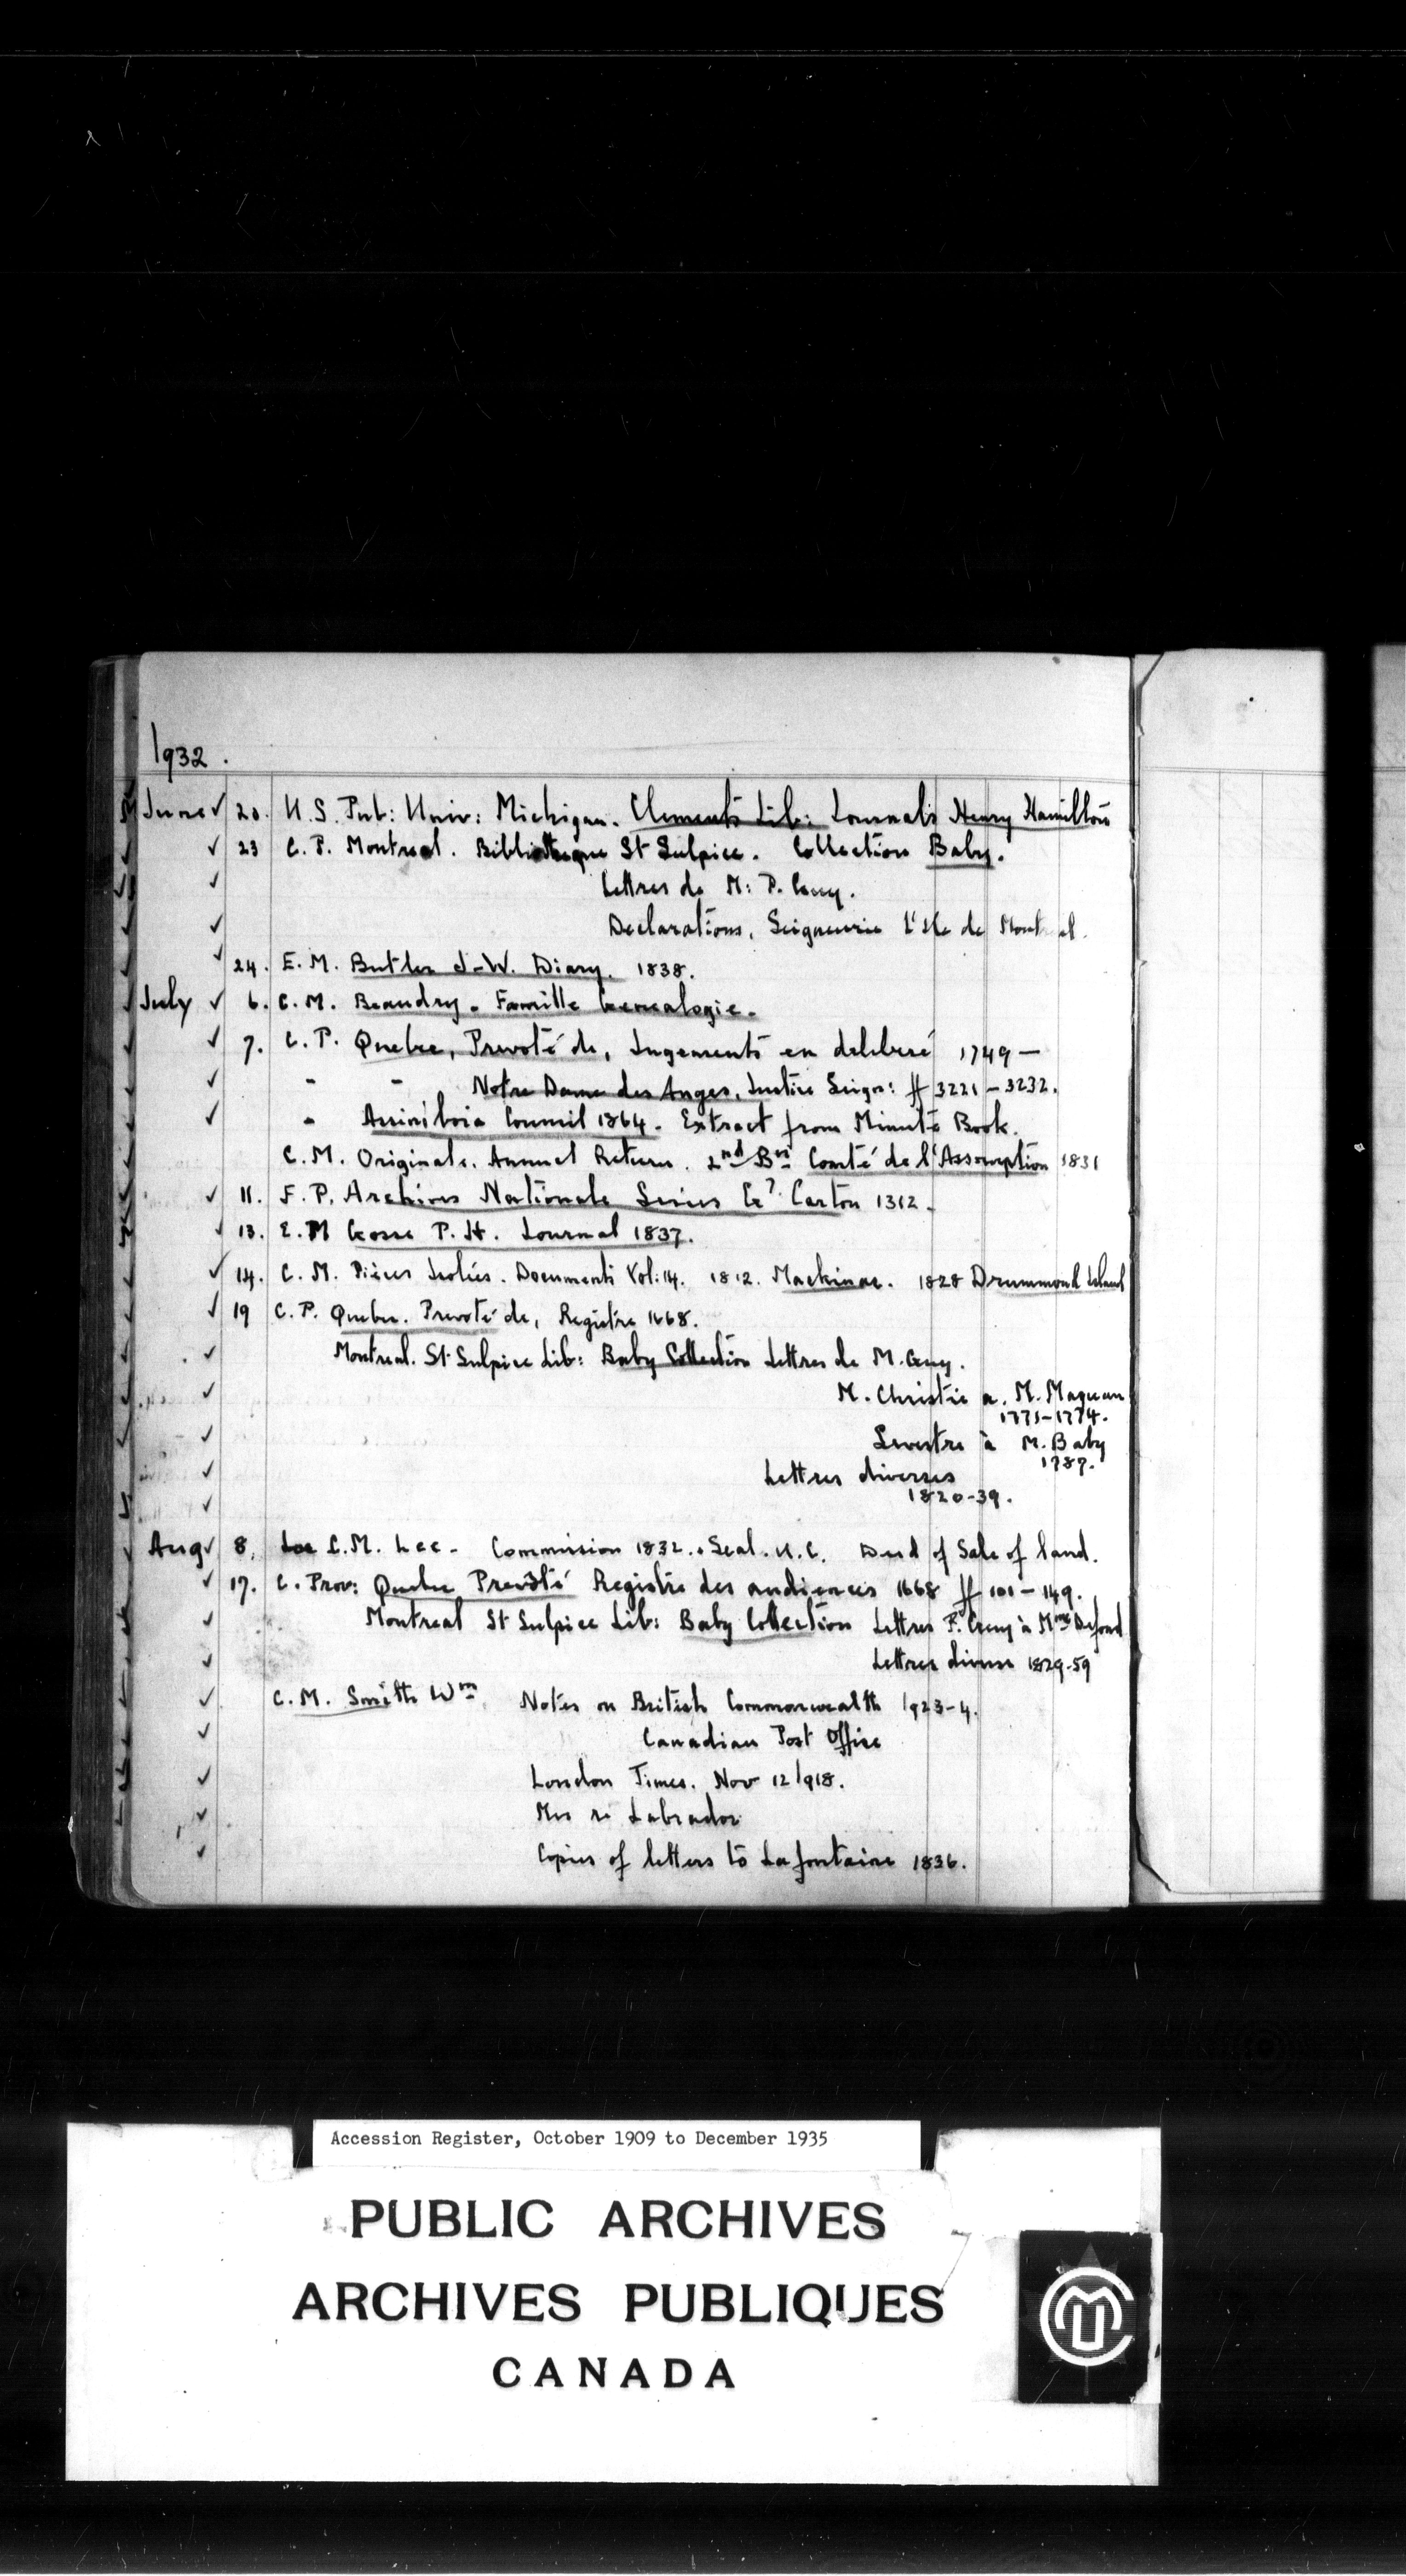 1932.
June ✓ 20. U.S. Pub: Univ: Michigan. Clements Lib: Journals Henry Hamilton
✓ 23 C.P. Montreal. Bibliotheque St Sulpice. Collection Baby.
✓ Lettres de M: P. Guy.
✓ Declarations, Seigneurie l'Ile de Montreal.
✓ 24. E.M. Butler J-W. Diary. 1838.
July ✓ 6. C.M. Beaudry. Famille Genealogie.
✓ 7. C.P. Quebec, Prevoté de, Jugements en deliberé 1749 —
✓ " " Notre Dame des Anges, Justice Seign: ff 3221 - 3232.
✓ " Assiniboia Council 1864. Extract from Minute Book.
C.M. Originals. Annual Return. 2nd Bn Comté de l'Assomption 1831
✓ 11. F.P. Archives Nationale Series G7. Carton 1312.
✓ 13. E.M Gosse P.H. Journal 1837.
✓ 14. C.M. Pièces Isolées. Documents Vol: 14. 1812. Mackinac. 1828 Drummond Island
✓ 19 C.P. Quebec. Prevoté de, Registre 1668.
✓ Montreal. St Sulpice Lib: Baby Collection Lettres de M. Guy.
✓ M. Christie a. M.
1771-1774.
✓ à M. Baby
1787.
✓ Lettres diverses
✓ 1820-39.
Aug ✓ 8. C.M. Lee. Commission 1832. Seal. U.C. Deed of Sale of land.
✓ 17. C. Prov: Quebec Prevôté Registre des audiences 1668 ff 101 - 149.
✓ Montreal St Sulpice Lib: Baby Collection Lettres P. Guy à Mme
✓ Lettres diverses 1829-59
✓ C.M. Smith Wm Notes on British Commonwealth 1923-4.
✓ Canadian Post Office
✓ London Times. Nov 12 1918.
✓ re Labrador
✓ Copies of letters to Lafontaine 1836.
Accession Register, October 1909 to December 1935
PUBLIC ARCHIVES
ARCHIVES PUBLIQUES
CANADA